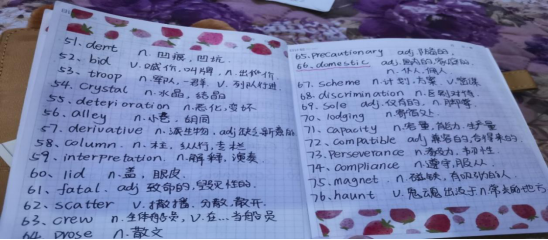 51. dent n. 凹痕, 凹坑
52. bid v. 喊价, 叫牌, n. 出价
53. troop n. 军队, 一群 v. 列队行进
54. crystal n. 水晶, 结晶
55. deterioration n. 恶化, 变坏
56. alley n. 小巷, 胡同
57. derivative n. 派生物, adj 缺乏新意的
58. column. n. 柱, 纵行, 专栏
59. interpretation. n. 解释, 演奏
60. lid n. 盖, 眼皮
61. fatal. adj 致命的, 毁灭性的.
62. scatter v. 撒播, 分散, 散开.
63. crew n. 全体船员, v. 在…当船员
64. prose n. 散文
65. precautionary adj 预防的.
66. domestic adj. 国内的, 家庭的.
n. 佣人
67. scheme n. 计划, 方案 v. 密谋
68. discrimination n. 区别对待
69. sole adj. 仅有的, n. 脚掌
70. lodging n. 寄宿处
71. Capacity n. 容量, 能力, 生产量
72. Compatible adj 兼容的, 合得来的
73. Perseverance n. 毅力, 韧性
74. compliance n. 遵守, 服从.
75. magnet. n. 磁铁, 有吸引力的人.
76. haunt v. 鬼魂出没于 n. 常去的地方